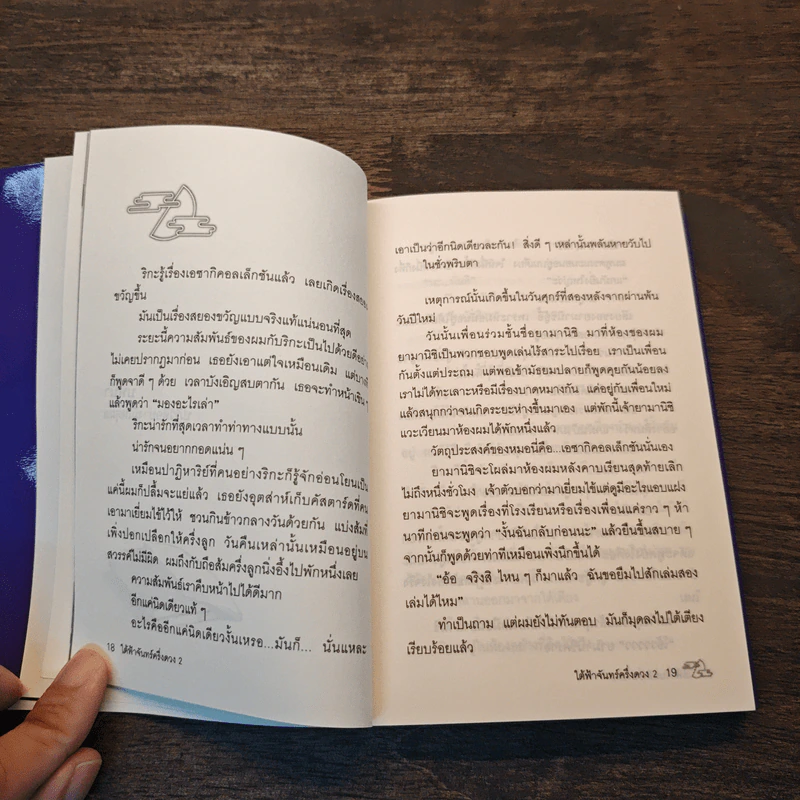 ริกะรู้เรื่องเอซากิคอลเล็กชันแล้ว เลยเกิดเรื่องสยอง
ขวัญขึ้น
มันเป็นเรื่องสยองขวัญแบบจริงแท้แน่นอนที่สุด
ระยะนี้ความสัมพันธ์ของผมกับริกะเป็นไปด้วยดีอย่าง
ไม่เคยปรากฏมาก่อน เธอยังเอาแต่ใจเหมือนเดิม แต่บาง
ก็พูดจาดี ๆ ด้วย เวลาบังเอิญสบตากัน เธอจะทำหน้าเชิน ๆ
แล้วพูดว่า “มองอะไรเล่า”
ริกะน่ารักที่สุดเวลาทำท่าทางแบบนั้น
น่ารักจนอยากกอดแน่น ๆ
เหมือนปาฏิหาริย์ที่คนอย่างริกะก็รู้จักอ่อนโยนเป็น
แค่นี้ผมก็ปลื้มจะแย่แล้ว เธอยังอุตส่าห์เก็บคัสตาร์ดที่คน
เอามาเยี่ยมไข้ไว้ให้ ชวนกินข้าวกลางวันด้วยกัน แบ่งส้มที่
เพิ่งปอกเปลือกให้ครึ่งลูก วันคืนเหล่านั้นเหมือนอยู่บน
สวรรค์ไม่มีผิด ผมถึงกับถือส้มครึ่งลูกนิ่งอึ้งไปพักหนึ่งเลย
ความสัมพันธ์เราคืบหน้าไปได้ดีมาก
อีกแค่นิดเดียวแท้ ๆ
อะไรคืออีกแค่นิดเดียวงั้นเหรอ...มันก็... นั่นแหละ
18 ใต้ฟ้าจันทร์ครึ่งดวง 2
เอาเป็นว่าอีกนิดเดียวละกัน! สิ่งดี ๆ เหล่านั้นพลันหายวับไป
ในชั่วพริบตา
เหตุการณ์นั้นเกิดขึ้นในวันศุกร์ที่สองหลังจากผ่านพ้น
วันปีใหม่
วันนั้นเพื่อนร่วมชั้นชื่อยามานิชิ มาที่ห้องของผม
ยามานิชิเป็นพวกชอบพูดเล่นไร้สาระไปเรื่อย เราเป็นเพื่อน
กันตั้งแต่ประถม แต่พอเข้ามัธยมปลายก็พูดคุยกันน้อยลง
เราไม่ได้ทะเลาะหรือมีเรื่องบาดหมางกัน แค่อยู่กับเพื่อนใหม่
แล้วสนุกกว่าจนเกิดระยะห่างขึ้นมาเอง แต่พักนี้เจ้ายามานิชิ
แวะเวียนมาห้องผมได้พักหนึ่งแล้ว
วัตถุประสงค์ของหมอนี่คือ...เอซากิคอลเล็กชันนั่นเอง
ยามานิชิจะโผล่มาห้องผมหลังคาบเรียนสุดท้ายเลิก
ไม่ถึงหนึ่งชั่วโมง เจ้าตัวบอกว่ามาเยี่ยมไข้แต่ดูมีอะไรแอบแฝง
ยามานิชิจะพูดเรื่องที่โรงเรียนหรือเรื่องเพื่อนแค่ราว ๆ ห้า
นาทีก่อนจะพูดว่า “งั้นฉันกลับก่อนนะ” แล้วยืนขึ้นสบาย ๆ
จากนั้นก็พูดด้วยท่าทีเหมือนเพิ่งนึกขึ้นได้
“อ้อ จริงสิ ไหน ๆ ก็มาแล้ว ฉันขอยืมไปสักเล่มสอง
เล่มได้ไหม”
ทำเป็นถาม แต่ผมยังไม่ทันตอบ มันก็มุดลงไปใต้เตียง
เรียบร้อยแล้ว
ใต้ฟ้าจันทร์ครึ่งดวง 2 19